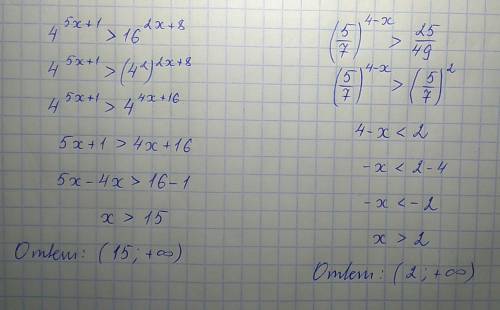 4^(5x+1) > 16^(2x+8)
4^(5x+1) > (4^2)^(2x+8)
4^(5x+1) > 4^(4x+16)
5x+1 > 4x+16
5x-4x > 16-1
x > 15
Ответ: (15; +∞)
(5/7)^(4-x) > 25/49
(5/7)^(4-x) > (5/7)^2
4-x < 2
-x < 2-4
-x < -2
x > 2
Ответ: (2; +∞)